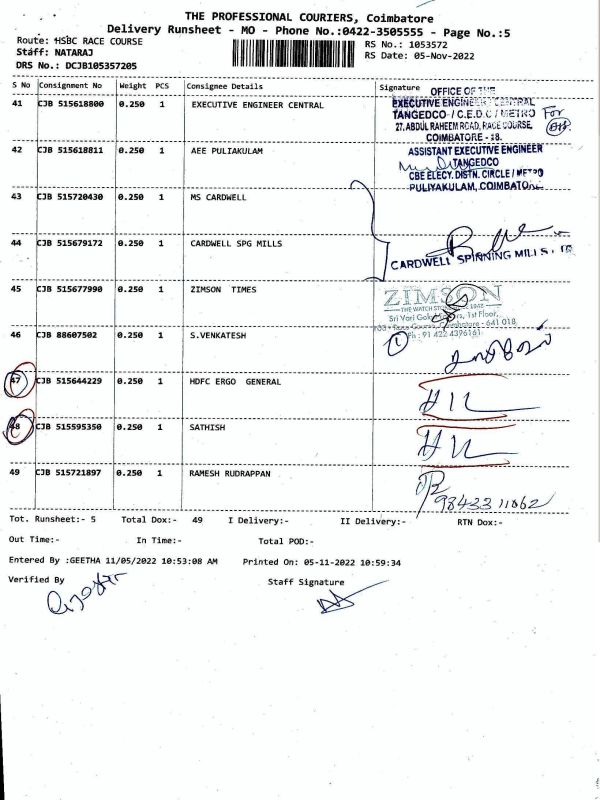 THE PROFESSIONAL COURIERS, Coimbatore
Delivery Runsheet - MO - Phone No.:0422-3505555 - Page No.:5
Route: HSBC RACE COURSE
Staff: NATARAJ
DRS No.: DCJB105357205
RS No.: 1053572
RS Date: 05-Nov-2022
S No Consignment No Weight PCS Consignee Details Signature
41 CJB 515618800 0.250 1 EXECUTIVE ENGINEER CENTRAL
OFFICE OF THE
EXECUTIVE ENGINEER CENTRAL
TANGEDCO / C.E.D.C / METRO For
27, ABDUL RAHEEM ROAD, RACE COURSE,
COIMBATORE - 18.
42 CJB 515618811 0.250 1 AEE PULIAKULAM
ASSISTANT EXECUTIVE ENGINEER
TANGEDCO
CBE ELECY. DISTN. CIRCLE / METRO
PULIYAKULAM, COIMBATORE
43 CJB 515720430 0.250 1 MS CARDWELL
44 CJB 515679172 0.250 1 CARDWELL SPG MILLS
CARDWELL SPINNING MILLS LTD
45 CJB 515677990 0.250 1 ZIMSON TIMES
ZIMSON
THE WATCH STORE 1948
Sri Vari Gokul Towers, 1st Floor,
103 - Race Course, Coimbatore - 641 018
Ph : 91 422 4396161
1
46 CJB 88607502 0.250 1 S.VENKATESH
47 CJB 515644229 0.250 1 HDFC ERGO GENERAL
48 CJB 515595350 0.250 1 SATHISH
49 CJB 515721897 0.250 1 RAMESH RUDRAPPAN
9843311062
Tot. Runsheet:- 5 Total Dox:- 49 I Delivery:- II Delivery:- RTN Dox:-
Out Time:- In Time:- Total POD:-
Entered By :GEETHA 11/05/2022 10:53:08 AM Printed On: 05-11-2022 10:59:34
Verified By Staff Signature